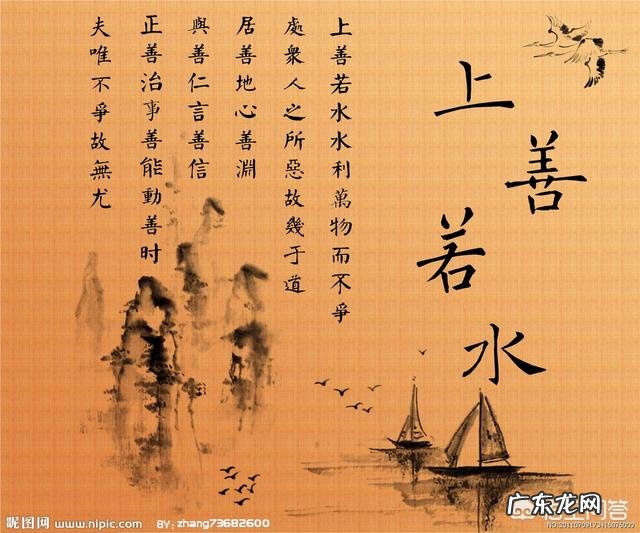 上善若水
上善若水水利萬物而不爭
處衆人之所惡故幾于道
居善地心善淵
與善仁言善信
正善治事善能動善时
夫唯不爭故無尤
昵图网 www.nipic.com BY: zhang73682600
广东龙网